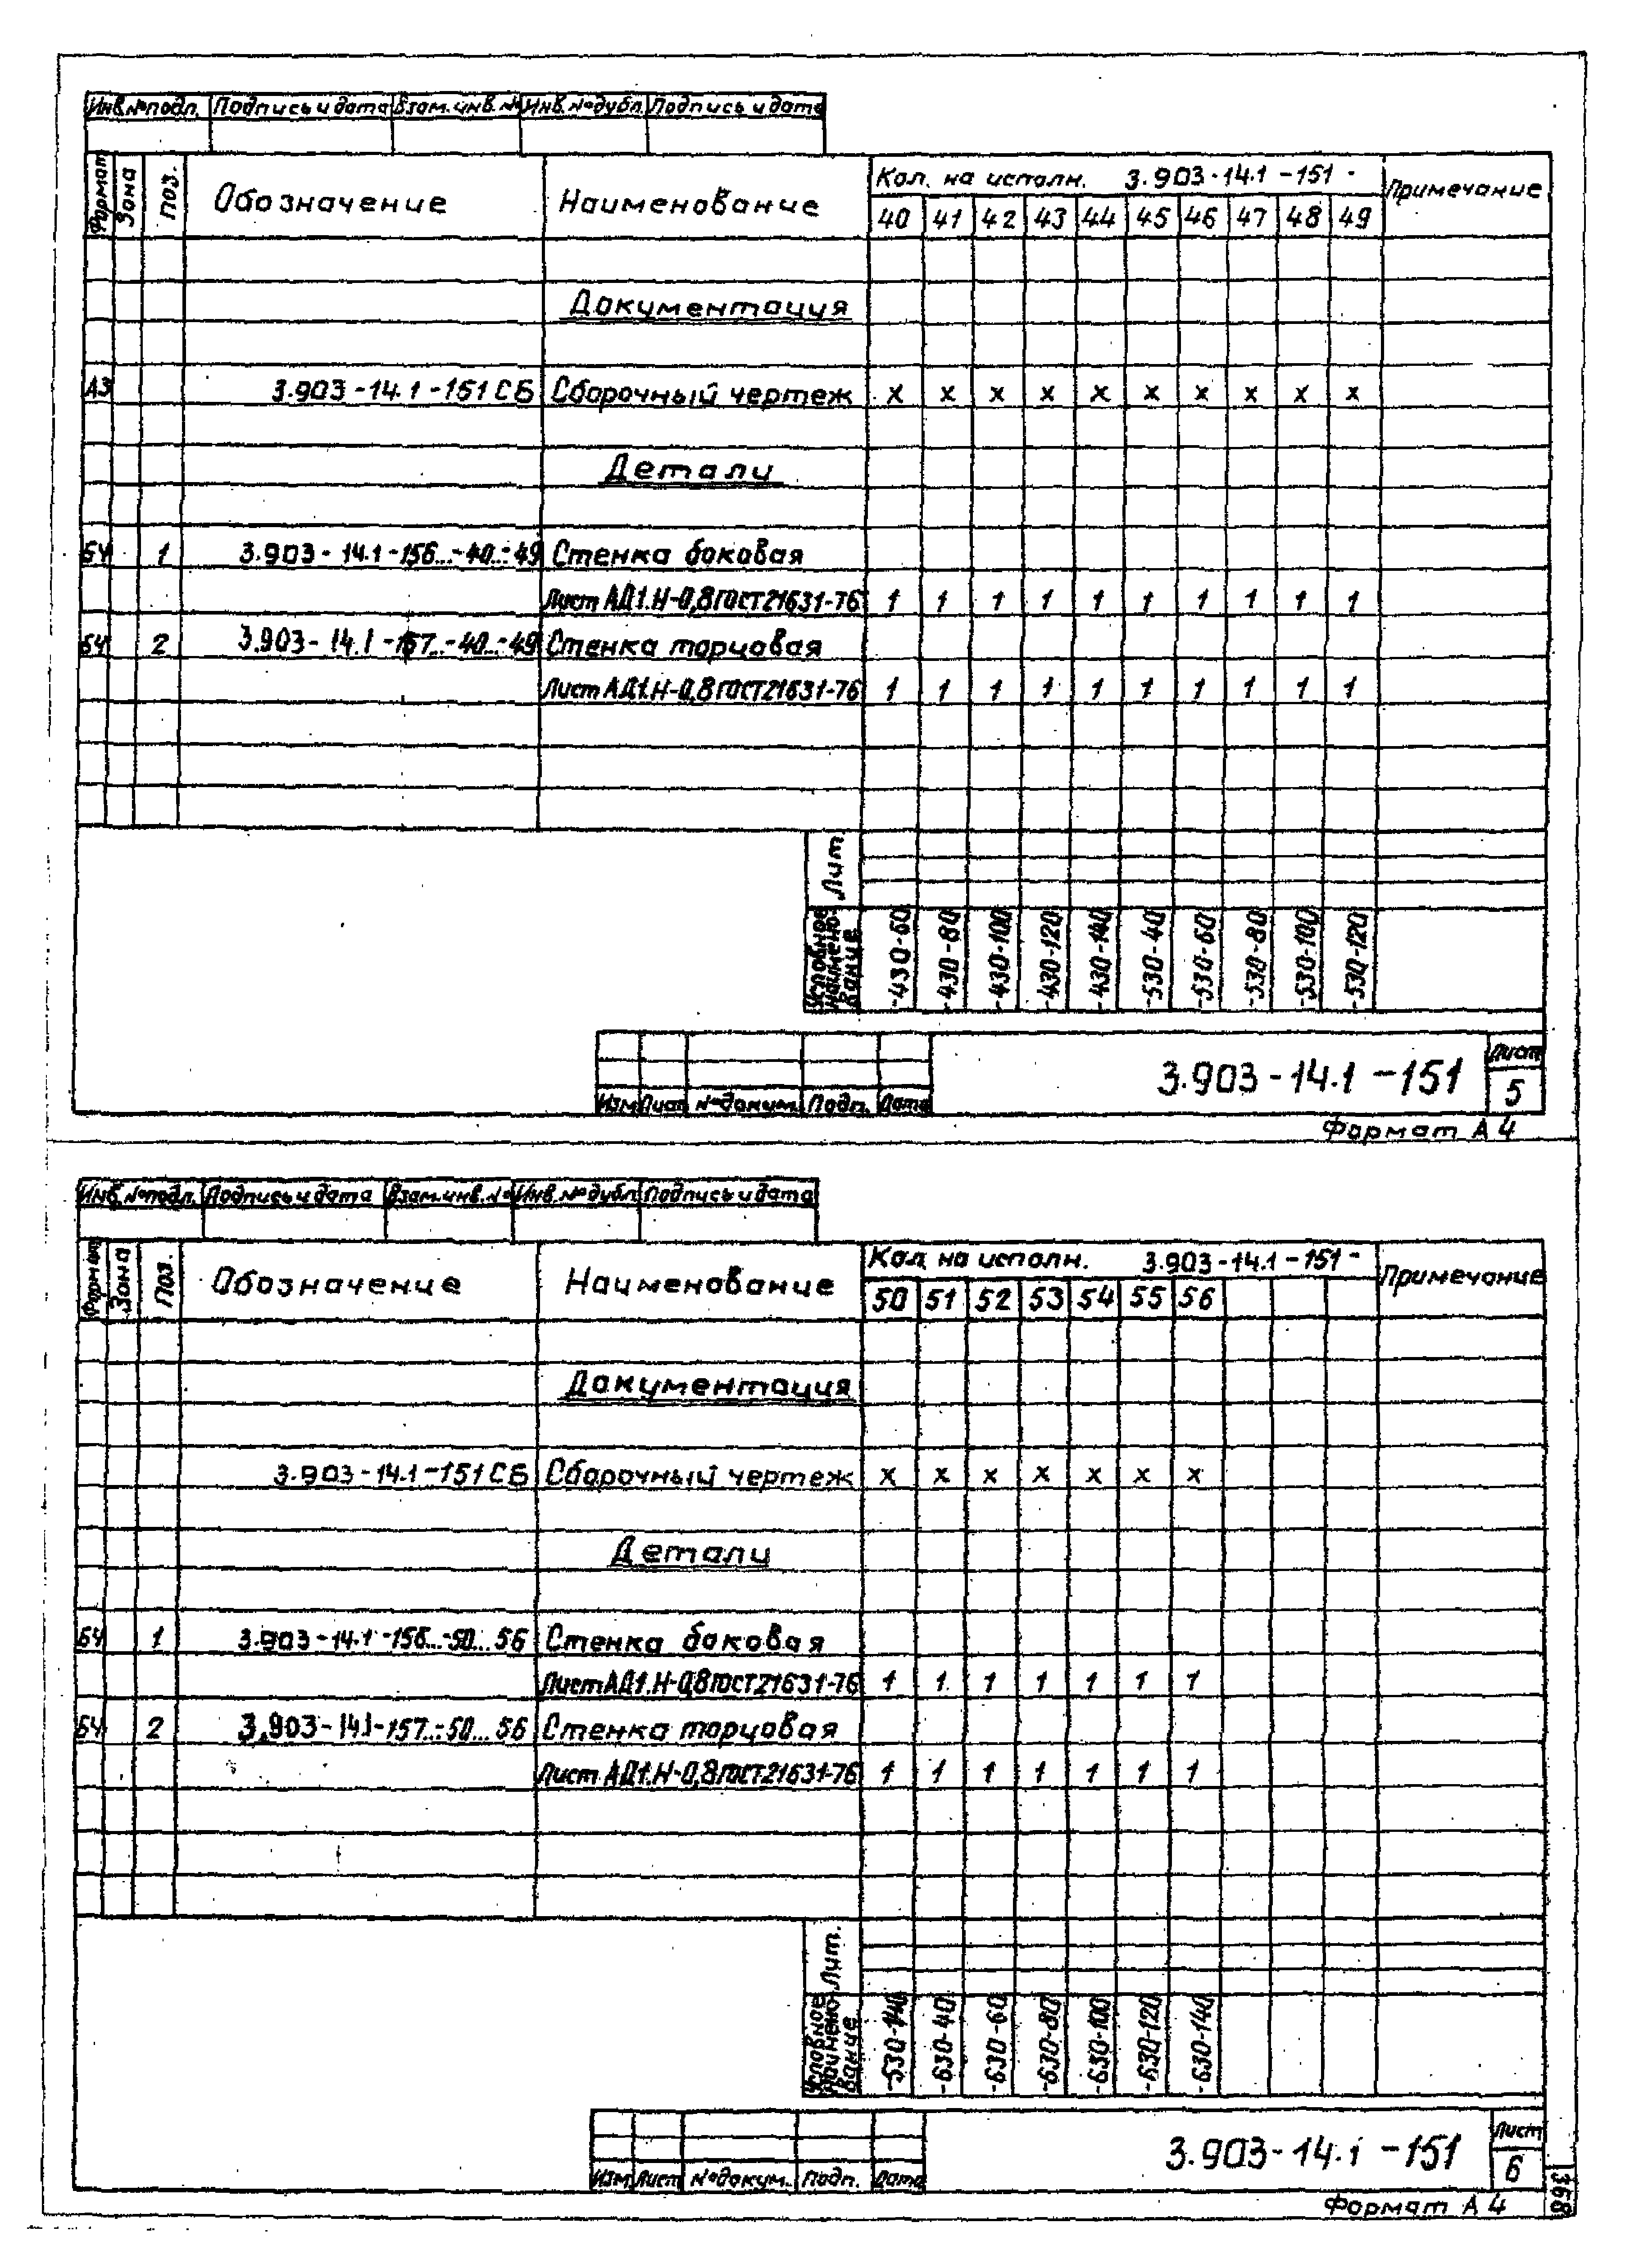 Инв.№ подл. Подпись и дата Взам. инв. № Инв. № дубл. Подпись и дата
Формат Зона Поз. Обозначение Наименование Кол. на исполн. 3.903-14.1-151- Примечание
40 41 42 43 44 45 46 47 48 49
Документация
А3 3.903-14.1-151 СБ Сборочный чертеж х х х х х х х х х х
Детали
БЧ 1 3.903-14.1-156...-40...-49 Стенка боковая
Лист АД1.Н-0,8 ГОСТ 21631-76 1 1 1 1 1 1 1 1 1 1
БЧ 2 3.903-14.1-157...-40...-49 Стенка торцовая
Лист АД1.Н-0,8 ГОСТ 21631-76 1 1 1 1 1 1 1 1 1 1
Лит.
Условное наименование -430-60 -430-80 -430-100 -430-120 -430-140 -530-40 -530-60 -530-80 -530-100 -530-120
3.903-14.1-151 Лист
5
Изм Лист № докум. Подп. Дата
Формат А4
Инв.№ подл. Подпись и дата Взам. инв. № Инв. № дубл. Подпись и дата
Формат Зона Поз. Обозначение Наименование Кол. на исполн. 3.903-14.1-151- Примечание
50 51 52 53 54 55 56
Документация
3.903-14.1-151 СБ Сборочный чертеж х х х х х х х
Детали
БЧ 1 3.903-14.1-156...-50...56 Стенка боковая
Лист АД1.Н-0,8 ГОСТ 21631-76 1 1 1 1 1 1 1
БЧ 2 3.903-14.1-157...-50...56 Стенка торцовая
Лист АД1.Н-0,8 ГОСТ 21631-76 1 1 1 1 1 1 1
Лит.
Условное наименование -530-140 -630-40 -630-60 -630-80 -630-100 -630-120 -630-140
3.903-14.1-151 Лист
6
Изм Лист № докум. Подп. Дата
Формат А4
1368